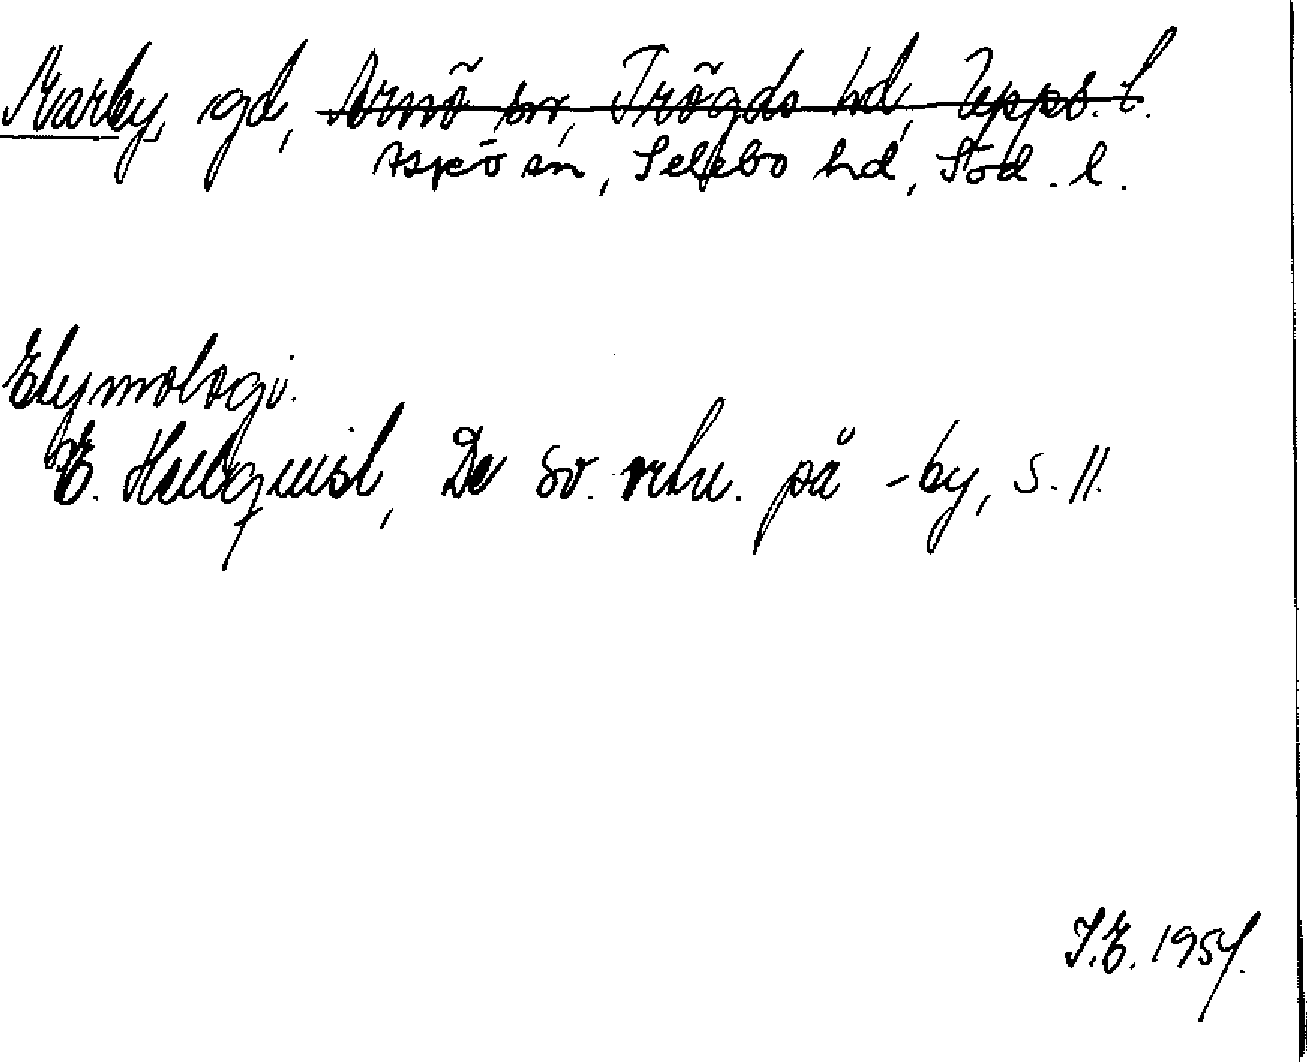 Marby, gd, Arnö sn, Trögds hd, Upps. l.
Aspö sn, Selebo hd, Söd. l.
Etymologi.
E. Hellquist, De sv. ortn. på -by, s. 11.
I.E. 1954.